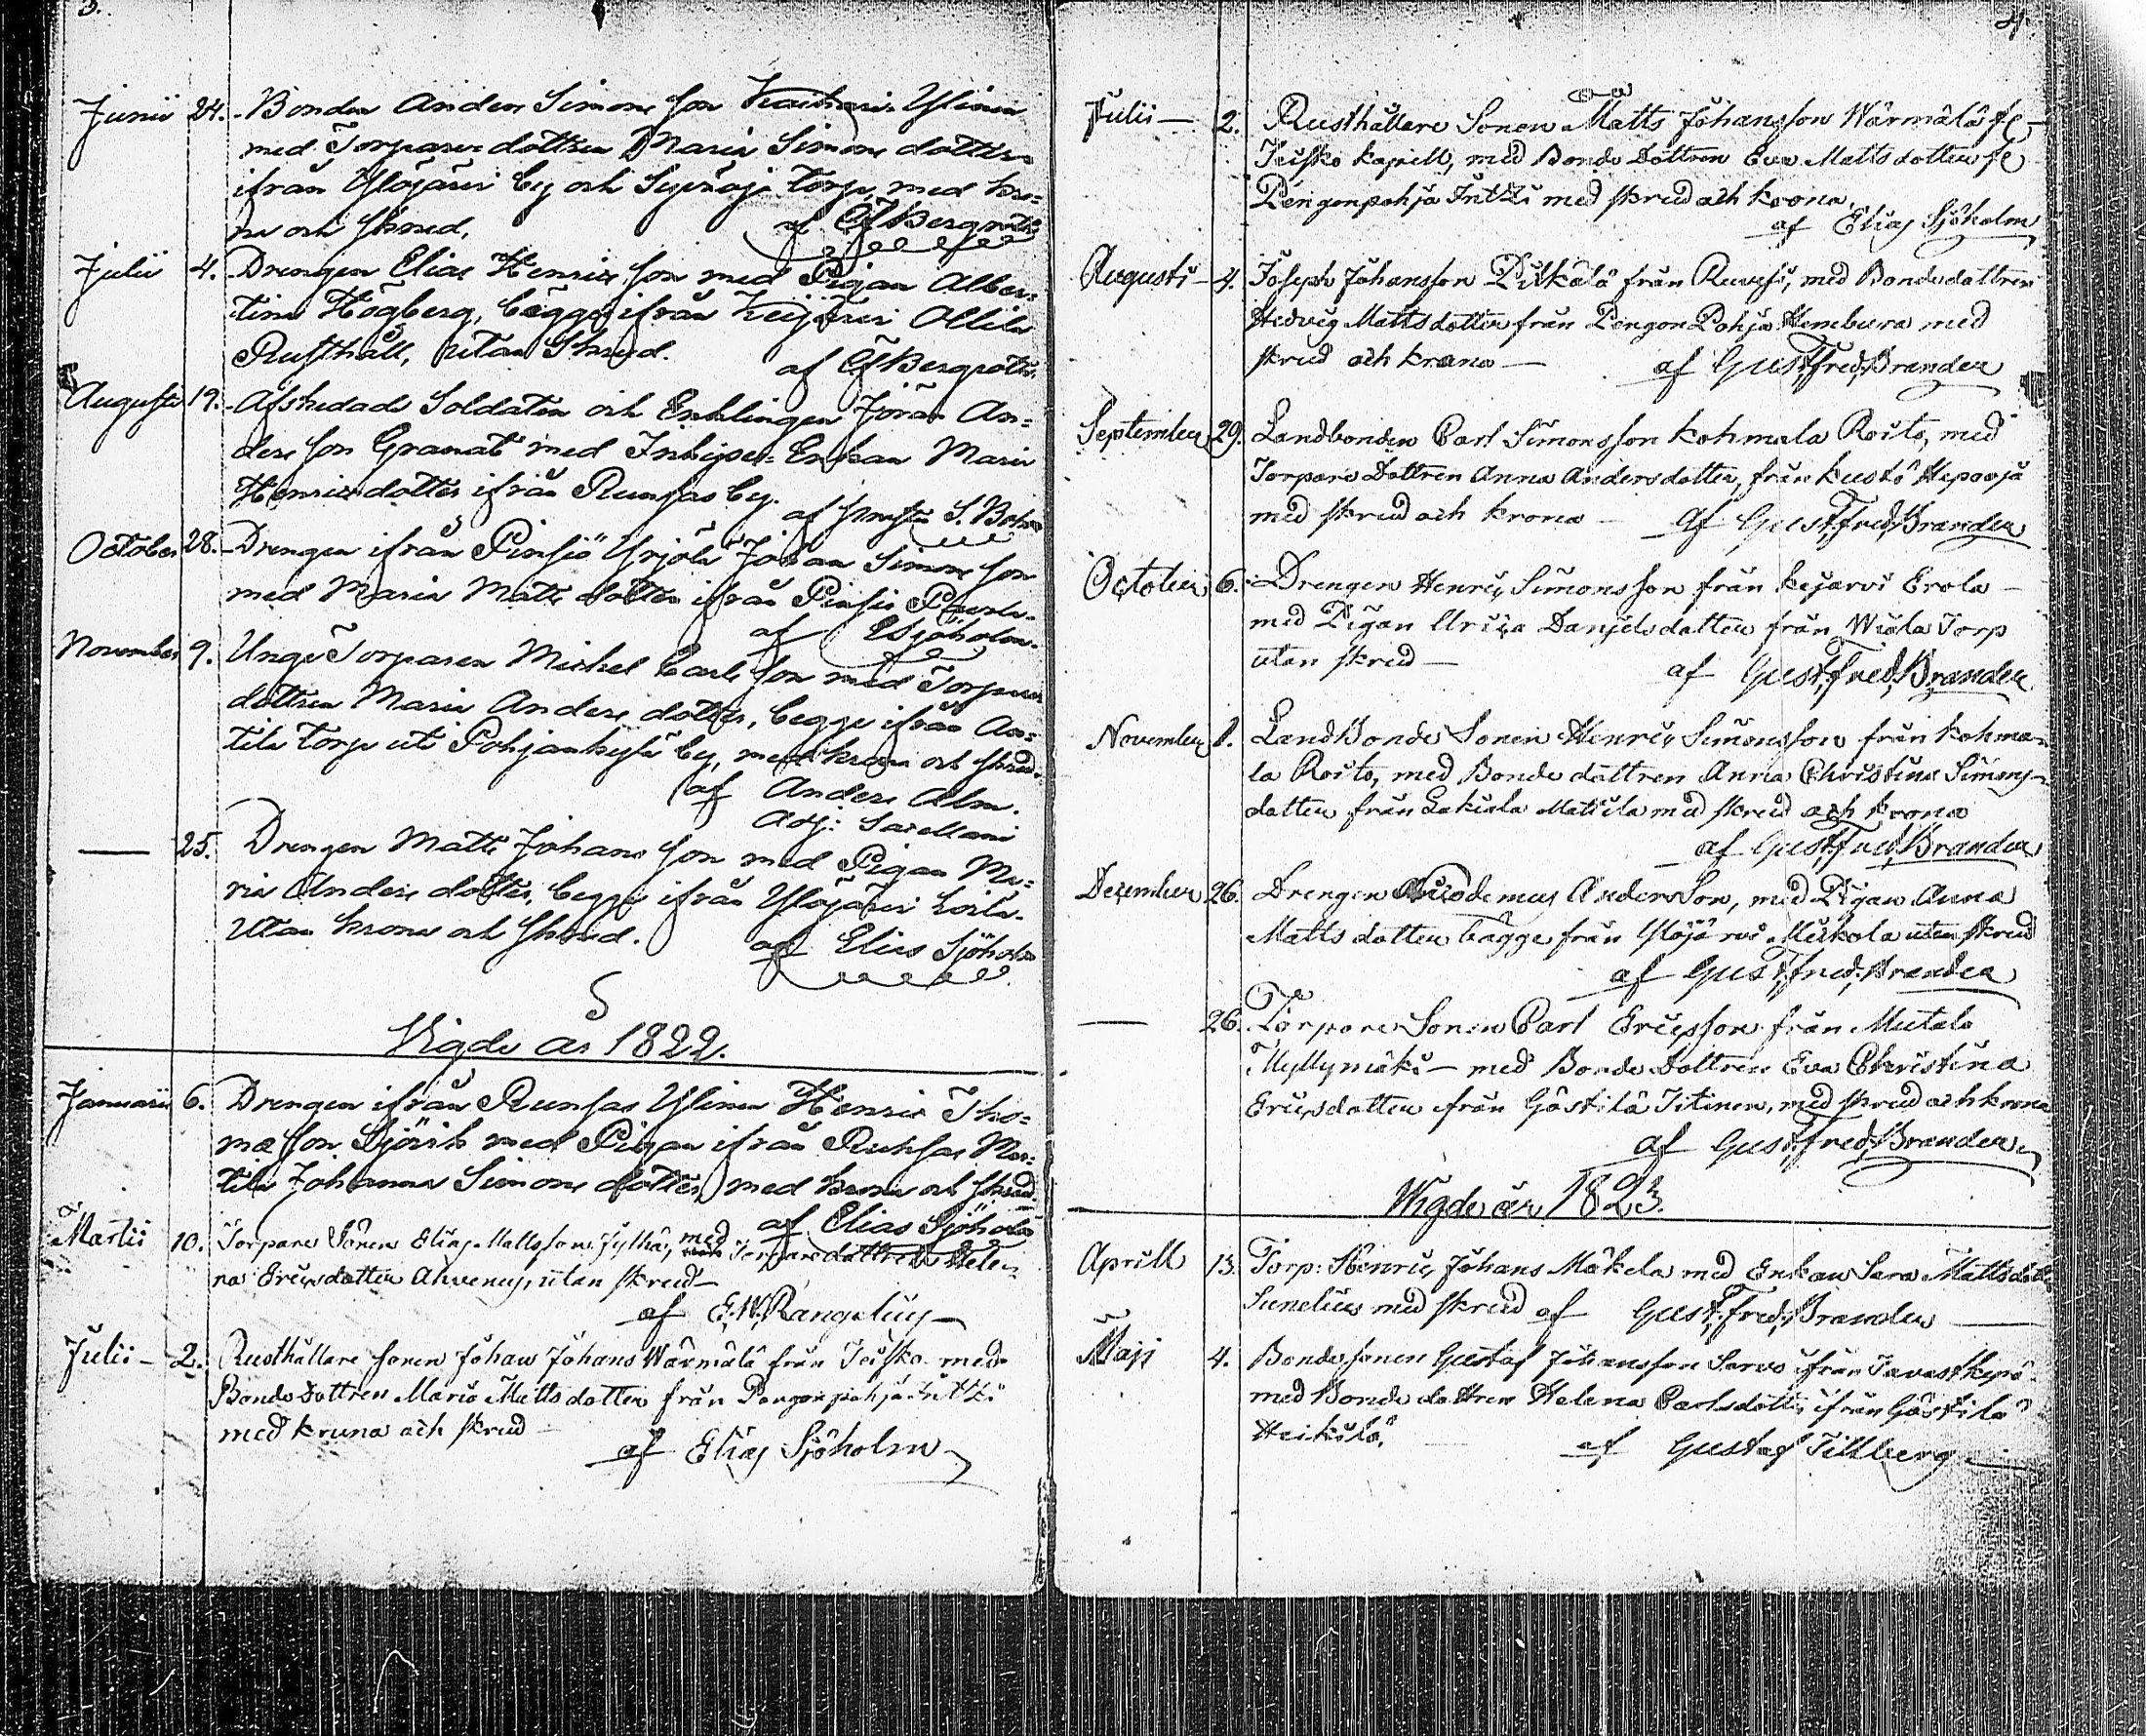 3.
Junii 24. Bonden Anders Simons son Ylinen
med Torpare dottren Maria Simons dotter
ifrån Ylöjärvi by och torp, med kro=
na och skrud,
af Bergroth
Julii 4. Drengen Elias Henrics son med Pigan Alber=
tina Högberg, bägge ifrån Keijärvi Ollila
Rusthåll, utan Skrud.
af Bergroth
Augusti 19. Afskedade Soldaten och Enklingen Jöran An=
ders son Granat med Inhyses=Enkan Maria
Henrics dotter ifrån Runsas by.
af S. Bohm
October 28. Drengen ifrån Pinsiö Yrjölä Johan Simons son
med Maria Matts dotter ifrån Pinsiö
af E Sjöholm.
November 9. Unge Torparen Michel Carls son med Torpare
dottren Maria Anders dotter, begge ifrån An=
tila torp uti Pohjankylä by, med krona och skrud.
af Anders Alm.
Adj:
— 25. Drengen Matts Johans son med Pigan Ma=
ria Anders dotter, begge ifrån Ylöjärvi
Utan krona och skrud.
af Elias Sjöholm
Vigde år 1822.
Januarii 6. Drengen ifrån Runsas Ylinen Henric Tho=
mæ son Sjörik med Pigan ifrån Runsas Mar=
tila Johanna Simons dotter, med krona och skrud.
af Elias Sjöholm
Martii 10. Torpare Sonen Elias Mattsson Jylhä, med Torpare dottren Hele=
na Ericsdotter Ahvenus, utan skrud —
af E.W. Rangelius —
Julii — 2. Rusthållare sonen Johan Johans Wärmälä från Teisko med
Bonde Dottren Maria Mattsdotter från Pengonpohja Inttzi
med kruna och skrud —
af Elias Sjöholm
4.
Julii — 2. Rusthållare Sonen Matts Johansson Wärmälä fr
Teisko kapell, med Bonde Dottren Eva Mattsdotter fr
Pengonpohja Inttzi med skrud och krona,
af Elias Sjöholm
Augusti — 4. Joseph Johansson Pitkälä från Ruvesi, med Bondedottren
Hedvig Mattsdotter från Pengon Pohja Hembura med
skrud och krona — af Gust: fred: Brander
September 29. Landbonden Carl Simonsson Kohmala Roito, med
Torpare Dottren Anna Andersdotter, från Kustö Hepooja
med skrud och krona — af Gust: fred: Brander
October 6. Drengen Henric Simonsson från Kejärvi Erola —
med Pigan Ulrica Danjelsdotter från Wiola Torp
utan skrud — af Gust: fred: Brander
November 1. Landbonde Sonen Henric Simonsson från Kohma-
la Roito, med Bonde dottren Anna Christina Simons-
dotter från Lakiala Mattila med skrud och krona
af Gust: fred: Brander
December 26. Drengen Nicodemus Andersson, med Pigan Anna
Matts dotter bägge från Ylöjärvi Mikola utan skrud
af Gust: fred: Brander
— 26. Torpare Sonen Carl Ericsson från Mutala
Myllymäki — med Bonde Dottren Eva Christina
Ericsdotter från Gästilä Titinen, med skrud och krona
af Gust: fred: Brander
Wigde år 1823.
Aprill 13. Torp: Henric Johans Mäkelä med Enkan Sara Mattsdott:
Sunelius med skrud af Gust: Fred: Brander —
Maji 4. Bondesonen Gustaf Johansson Sarvo ifrån Tavastkyrö
med Bonde dottren Helena Carlsdotter ifrån Gästilä
Heikilä. — af Gustaf Tillberg —